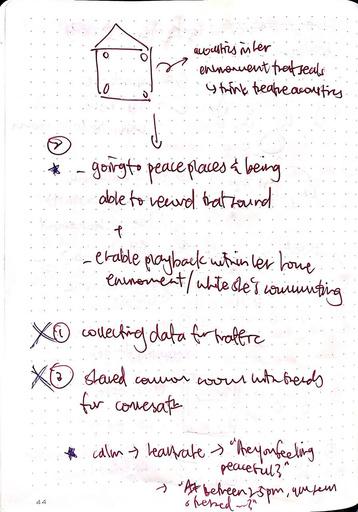 acoustics in her
environment that seals
↳ think theatre acoustics
- going to peace places & being
able to record that sound
+
- enable playback within her home
environment / while she's commuting
① collecting data for traffic
② shared common with friends
for
* calm → heartrate → "Are you feeling
peaceful?"
→ "At between 2-5pm, you
stressed
44